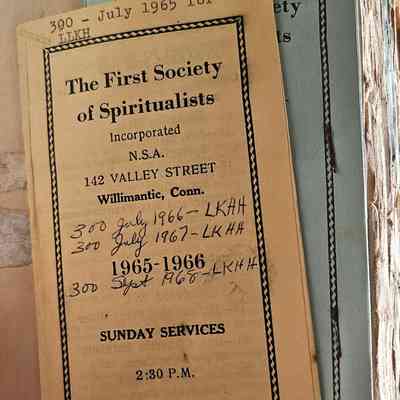 300 - July 1965 for
LLKH
The First Society
of Spiritualists
Incorporated
N.S.A.
142 VALLEY STREET
Willimantic, Conn.
300 July 1966 - LKHH
300 July 1967 - LKHH
1965-1966
300 Sept 1968 - LKHH
SUNDAY SERVICES
2:30 P.M.
ety
ts